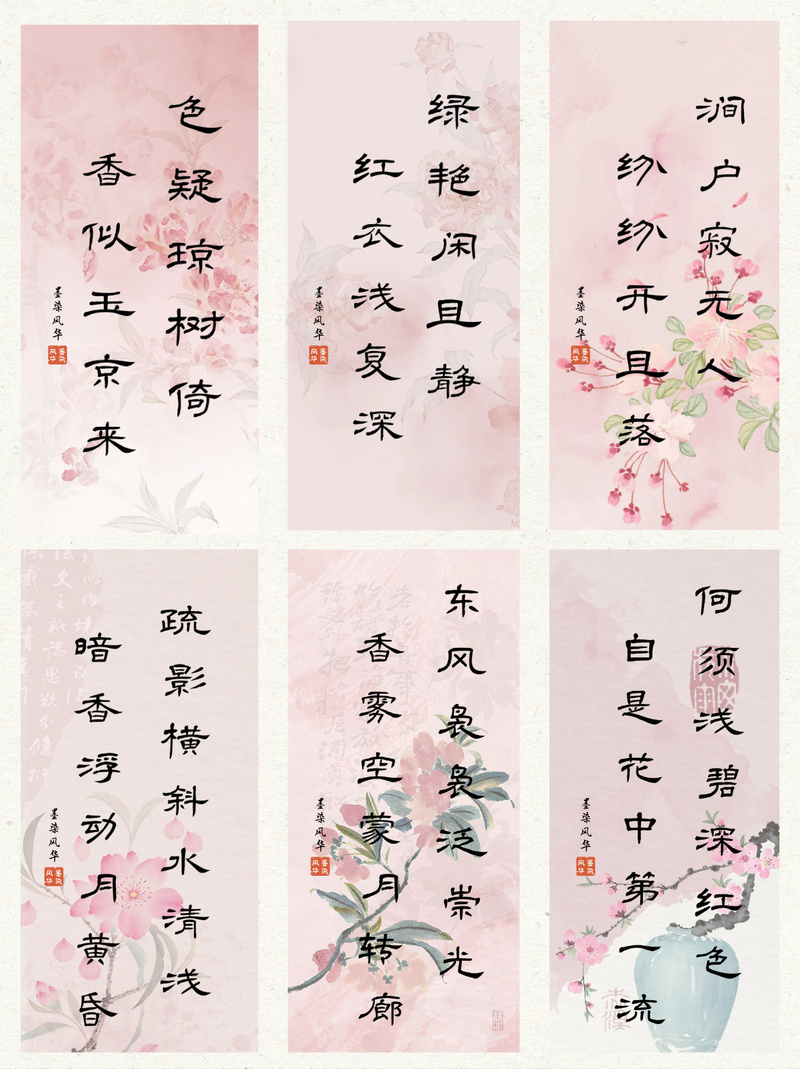 色疑琼树倚
香似玉京来
墨染风华
墨染风华
绿艳闲且静
红衣浅复深
墨染风华
墨染风华
涧户寂无人
纷纷开且落
墨染风华
墨染风华
疏影横斜水清浅
暗香浮动月黄昏
墨染风华
墨染风华
东风袅袅泛崇光
香雾空蒙月转廊
墨染风华
墨染风华
何须浅碧深红色
自是花中第一流
墨染风华
墨染风华